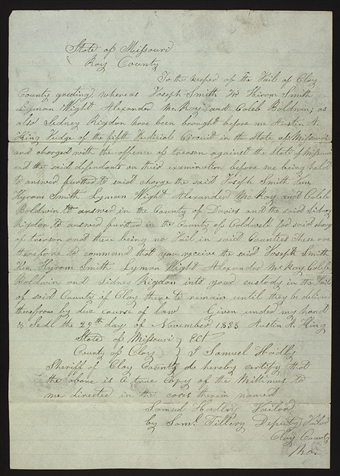 State of Missouri
Ray County
To the keeper of the Jail of Clay
County greeting whereas Joseph Smith Jr Hiram Smith
Lyman Wight Alexander McRay and Caleb Baldwin, as
also Sidney Rigdon have been brought before me Austin A
King Judge of the fifth Judicial Circuit in the State of Missouri
and charged with the offence of treason against the State of Missouri
and the said defendants on their examination before me being held
to answer further to said charge the said Joseph Smith Jun
Hyrum Smith Lyman Wight Alexander McRay and Caleb
Baldwin to answer in the County of Davies and the said Sidney
Rigdon to answer further in the County of Caldwell for said charge
of treason and there being no Jail in said Counties these are
therefore to command that you receive the said Joseph Smith
Jun Hyrum Smith Lyman Wight Alexander McRay Caleb
Baldwin and Sidney Rigdon into your custody in the Jail
of said County of Clay there to remain until they be delivered
therefrom by due course of law Given under my hand
& Seal the 29th day of November 1838 Austin A King
State of Missouri
County of Clay } I Samuel Hadley
Sheriff of Clay County do hereby certify that
the above is a true copy of the Mittimus to
me directed in the cases therein named
Samuel Hadley Jailor
by Saml Tillery Deputy Jailor
Clay County
Mo.